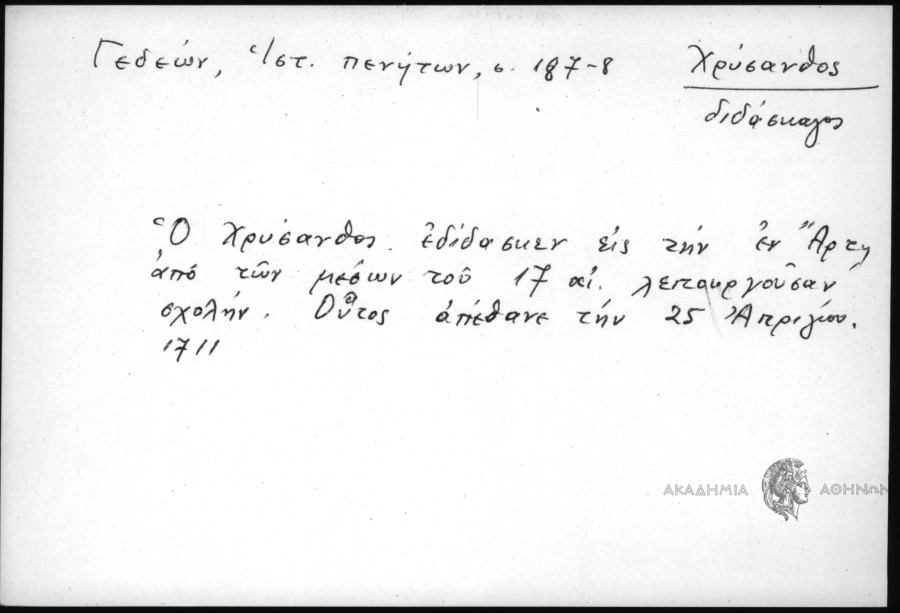 Γεδεών, Ἱστ. πενήτων, σ. 187-8
Χρύσανθος
διδάσκαλος
Ὁ Χρύσανθος. ἐδίδασκεν εἰς τὴν ἐν Ἄρτῃ
ἀπό τῶν μέσων τοῦ 17 αἰ. λειτουργοῦσαν
σχολήν. Οὗτος ἀπέθανε τήν 25 Ἀπριλίου.
1711
ΑΚΑΔΗΜΙΑ ΑΘΗΝΩΝ